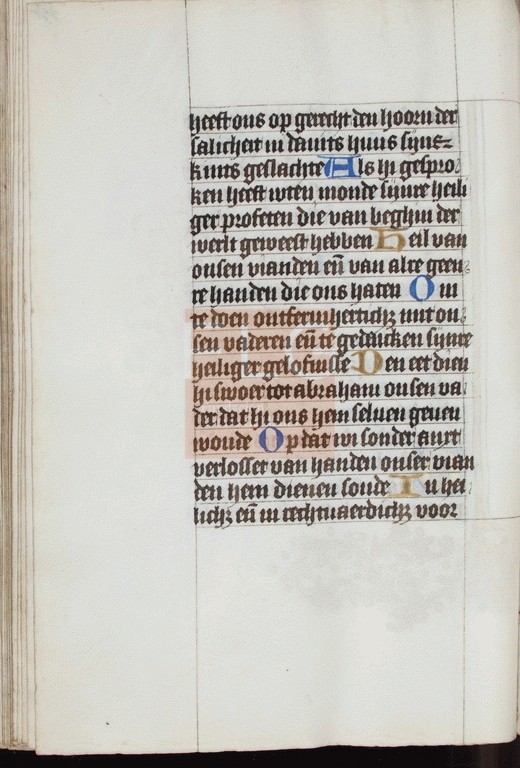 heeft ons op gerecht den hoorn der
salicheit in dauits huus sijns
kints geslachte Als hi gespro
ken heeft wten monde sijnre heili
ger profeten die van beghin der
werlt geweest hebben Heil van
onsen vianden en̄ van alre geen
re handen die ons haten Om
te doen ontfermherticħz mit on
sen vaderen en̄ te gedincken sijnre
heiliger gelofnisse Den eet dien
hi swoer tot abraham onsen va
der dat hi ons hem seluen geuen
woude Op dat wi sonder anxt
verlosset van handen onser vian
den hem dienen soude In hei
licħz en̄ in rechtuaerdicħz voor